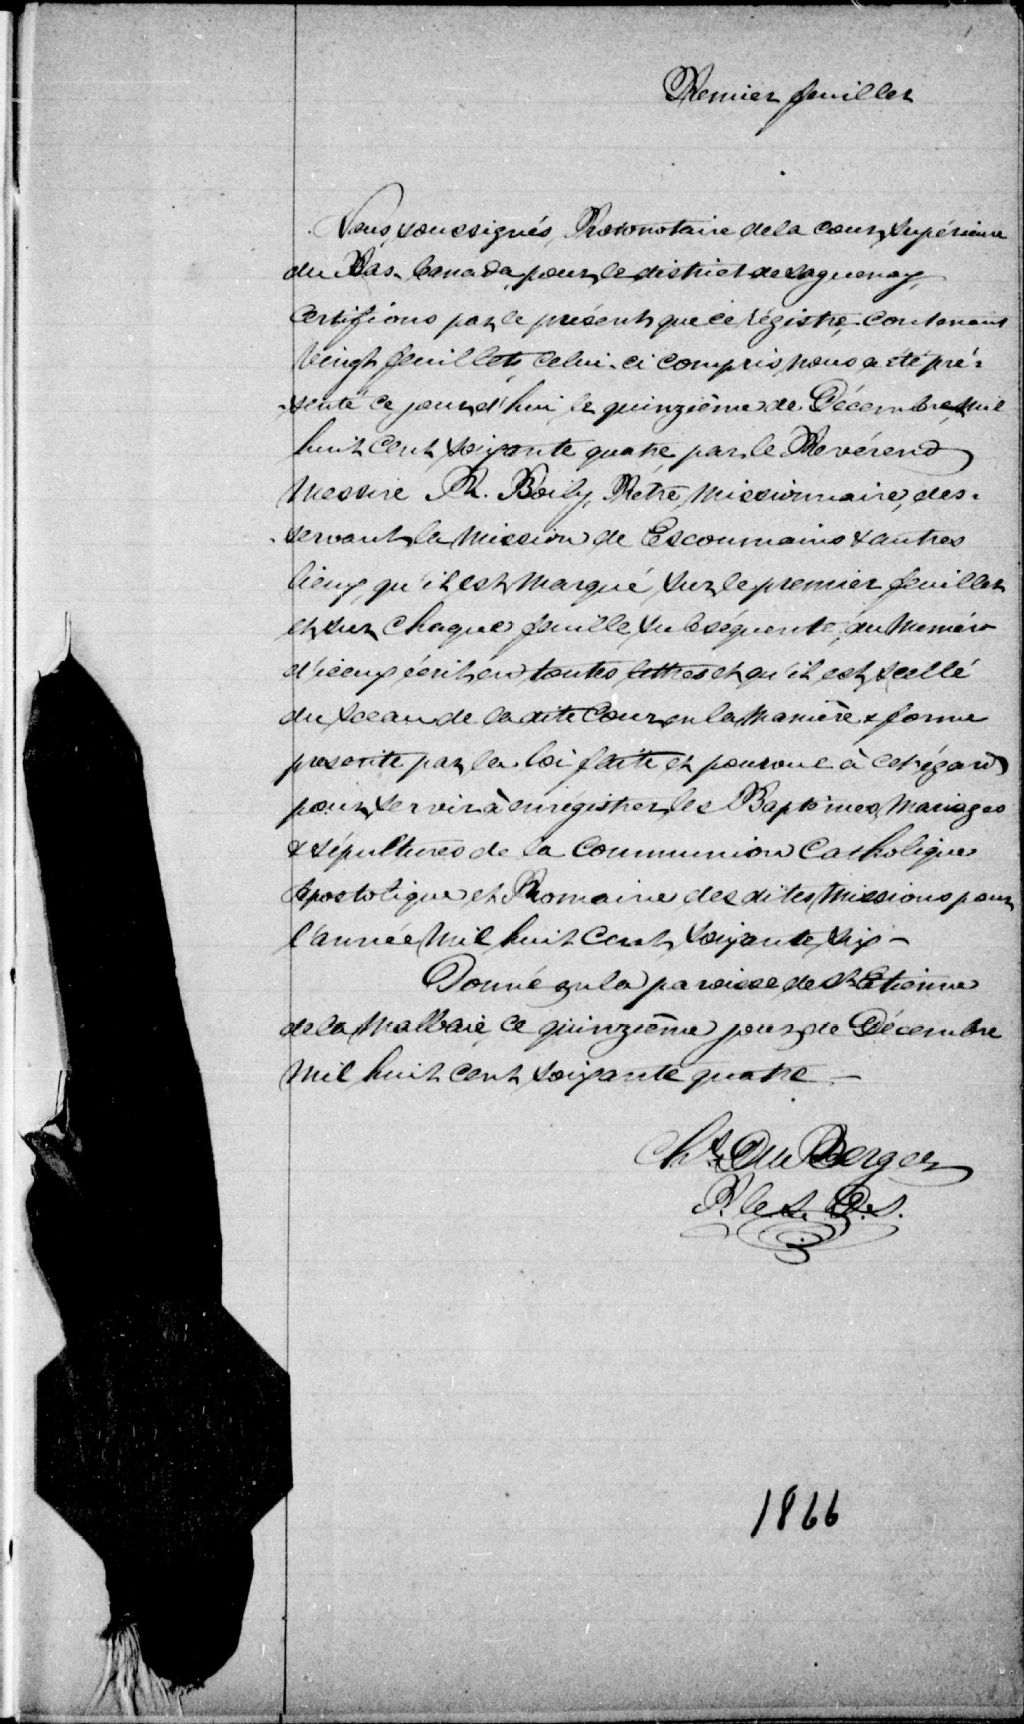 Premier feuillet
Nous, soussignés, Protonotaire de la cour Supérieure
du Bas-Canada, pour le district de Saguenay,
Certifions par le présent que ce régistre, contenant
Vingt feuillets, celui-ci compris, nous a été pré-
-senté ce jourd'hui le quinzième de Décembre, mil
huit cent soixante quatre, par le Revérend
Messire R. Boily, Ptre, Missionnaire, des-
-servant la Mission de Escoumains & autres
lieux, qu'il est marqué, sur le premier feuillet
et sur chaque feuille subséquente, du Numéro
d'iceux écrit en toutes lettres et qu'il est scellé
du sceau de la dite Cour en la Manière & forme
prescrite par la loi faite et pourvue à cet égard
pour servir à enrégistrer les Baptêmes, Mariages
& sépultures de la Communion Catholique
Apostolique et Romaine des dites Missions pour
l'année Mil huit Cent soixante six -
Donné en la paroisse de St Etienne
de la Malbaie, ce quinzième jour de Décembre
Mil huit cent soixante quatre. -
Chs. Du Berger
P. C. S. D. S.
1866